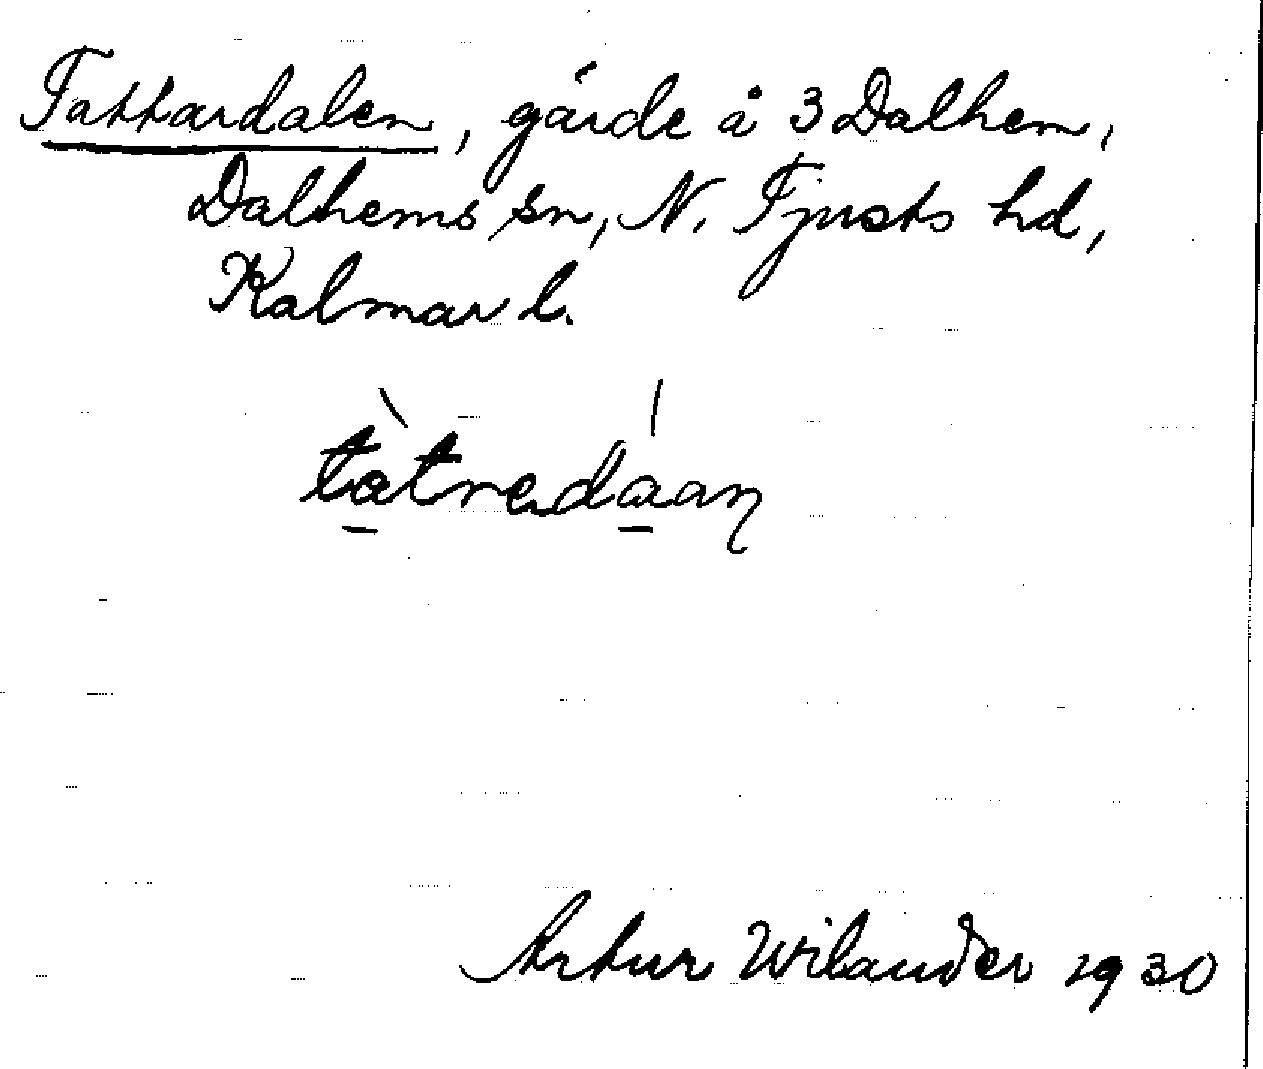 Tattardalen, gärde å 3 Dalhem,
Dalhems sn, N. Tjusts hd,
Kalmar l.
Artur Wilander 1930